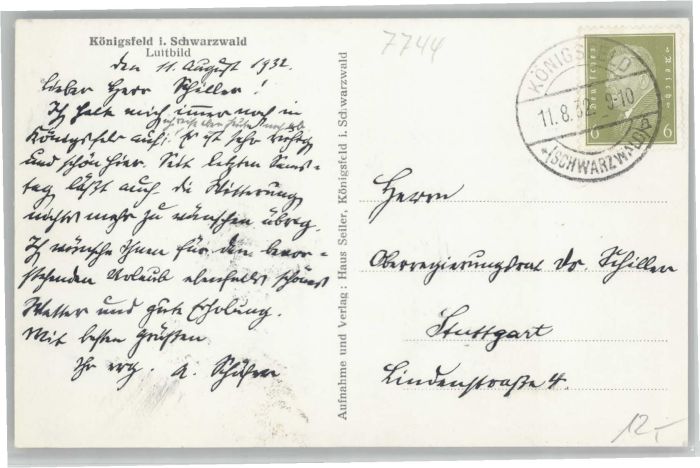 Königsfeld i. Schwarzwald
Luftbild
den 11. August 1932.
Lieber Herr Schiller!
Ich halte mich immer noch in
Königsfeld auf; Es ist sehr ruhig
und schön hier. Seit letzten Sams-
tag läßt auch die Witterung
nichts mehr zu wünschen übrig.
Ich wünsche Ihnen für den bevor-
stehenden Urlaub ebenfalls schönes
Wetter und gute Erholung.
Mit besten Grüßen
Ihr erg. A. Schäfer
Aufnahme und Verlag: Haus Seiler, Königsfeld i. Schwarzwald
7744
KÖNIGSFELD
11.8.32. 9-10
(SCHWARZWALD)
Deutsches Reich
6 6
Herrn
Oberregierungsrat Dr. Schiller
Stuttgart
Lindenstraße 4.
12,-